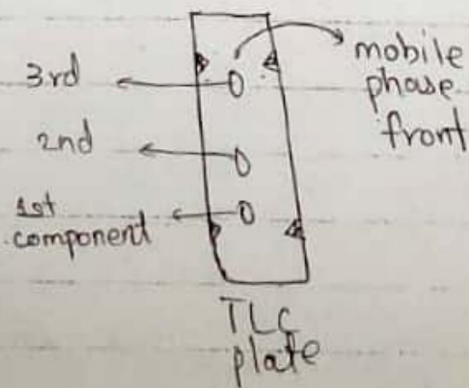 3rd
2nd
1st
component
mobile
phase
front
TLC
plate